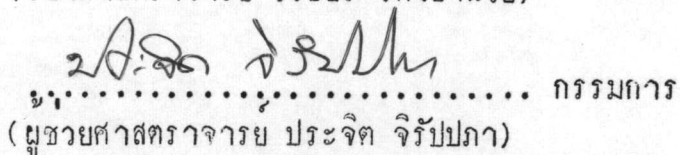 ประจิต จิรัปปภา
.............................. กรรมการ
(ผู้ช่วยศาสตราจารย์ ประจิต จิรัปปภา)